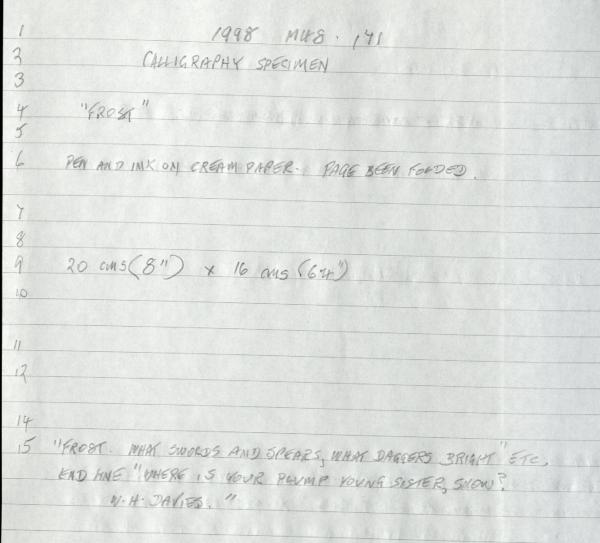 1 1998 MUS. 171
2 CALLIGRAPHY SPECIMEN
3
4 "FROST"
5
6 PEN AND INK ON CREAM PAPER. PAGE BEEN FOLDED.
7
8
9 20 cms (8") x 16 cms (6¼")
10
11
12
14
15 "FROST. WHAT SWORDS AND SPEARS, WHAT DAGGERS BRIGHT" ETC,
END LINE "WHERE IS YOUR PLUMP YOUNG SISTER, SNOW?
W.H. DAVIES."